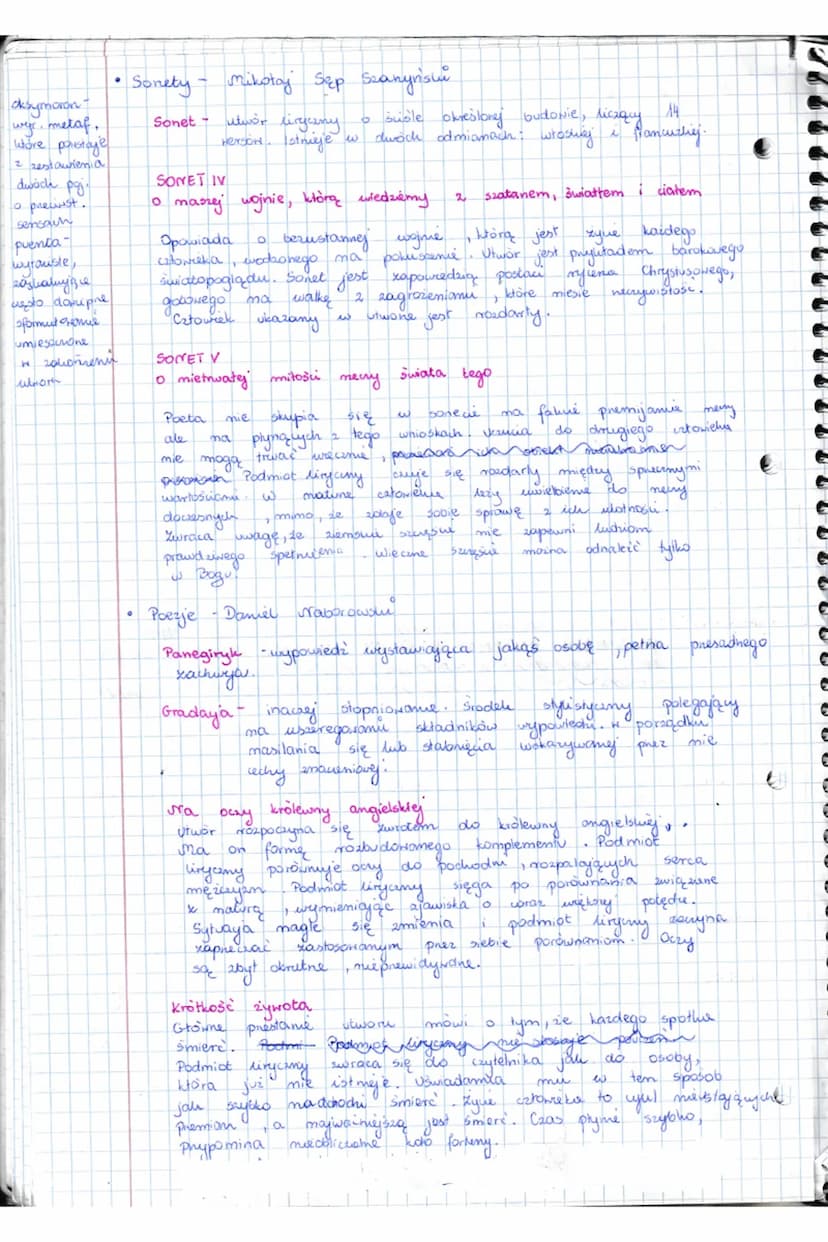 • Sonety - Mikołaj Sęp Szarzyński
oksymoron -
wyr. metaf.,
które powstaje
z zestawienia
dwóch poj.
o przeciwst.
sensach
puenta -
wyraziste,
zaskakujące
często dowcipne
sformułowanie
umieszczone
w zakończeniu
utworu
Sonet - utwór liryczny o ściśle określonej budowie, liczący 14
wersów. Istnieje w dwóch odmianach: włoskiej i francuskiej.
SONET IV
O naszej wojnie, którą wiedziemy z szatanem, światem i ciałem
Opowiada o bezustannej wojnie, którą jest życie każdego
człowieka, wodzonego na pokuszenie. Utwór jest przykładem barokowego
światopoglądu. Sonet jest zapowiedzią postaci rycerza Chrystusowego,
gotowego na walkę z zagrożeniami, które niesie rzeczywistość.
Człowiek ukazany w utworze jest rozdarty.
SONET V
O nietrwałej miłości rzeczy świata tego
Poeta nie skupia się w sonecie na fakcie przemijania rzeczy
ale na płynących z tego wnioskach. Uczucia do drugiego człowieka
nie mogą trwać wiecznie,
Podmiot liryczny czuje się rozdarty między sprzecznymi
wartościami. W naturze człowieka leży uwielbienie do rzeczy
doczesnych, mimo, że zdaje sobie sprawę z ich ulotności.
Zwraca uwagę, że ziemskie szczęście nie zapewni ludziom
prawdziwego spełnienia. Wieczne szczęście można odnaleźć tylko
w Bogu.
• Poezje - Daniel Naborowski
Panegiryk - wypowiedź wystawiająca jakąś osobę, pełna przesadnego
zachwytu.
Gradacja - inaczej stopniowanie. Środek stylistyczny polegający
na uszeregowaniu składników wypowiedzi w porządku
nasilania się lub słabnięcia wskazywanej przez nie
cechy znaczeniowej.
Na oczy królewny angielskiej
Utwór rozpoczyna się zwrotem do królewny angielskiej.
Ma on formę rozbudowanego komplementu. Podmiot
liryczny porównuje oczy do pochodni, rozpalających serca
mężczyzn. Podmiot liryczny sięga po porównania związane
z naturą, wymieniając zjawiska o coraz większej potędze.
Sytuacja nagle się zmienia i podmiot liryczny zaczyna
zaprzeczać zastosowanym przez siebie porównaniom. Oczy
są zbyt okrutne, nieprzewidywane.
Krótkość żywota
Główne przesłanie utworu mówi o tym, że każdego spotka
śmierć. Podmi- Podmiot liryczny nie stosuje
Podmiot liryczny zwraca się do czytelnika jak do osoby,
która już nie istnieje. Uświadamia mu w ten sposób
jak szybko nadchodzi śmierć. Życie człowieka to cykl
przemian, a najważniejszą jest śmierć. Czas płynie szybko,
przypomina nieobliczalne koło fortuny.